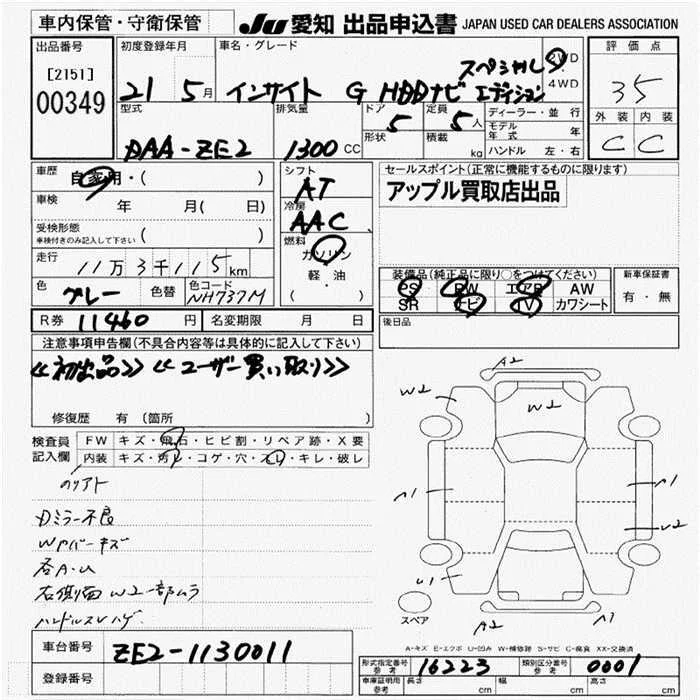 車内保管・守衛保管
JU 愛知 出品申込書 JAPAN USED CAR DEALERS ASSOCIATION
出品番号
[2151]
00349
初度登録年月
21 5月
車名・グレード
インサイト G HDDナビ スペシャル エディション
2WD・4WD
評価点
35
外装 内装
C C
型式
DAA-ZE2
排気量
1300 CC
ドア 5
形状
定員 5人
積載 kg
ディーラー・並行
モデル年式 年
ハンドル 左・右
車歴
自家用・( )
車検 年 月( 日)
受検形態
車検付きのみ記入して下さい ( )
走行
11万3千115km
色 グレー 色替
色コード NH737M
シフト AT
冷房 AAC
燃料
ガソリン
軽・油
( )
セールスポイント(正常に機能するものに限ります)
アップル買取店出品
装備品(純正品に限り○をつけてください)
PS PW エアB AW
SR ナビ TV カワシート
新車保証書
有・無
後日品
R券 11460 円 名変期限 月 日
注意事項申告欄(不具合内容等は具体的に記入して下さい)
≪初出品≫ ≪ユーザー買い取り≫
修復歴 有 (箇所 )
検査員記入欄
FW キズ・飛石・ヒビ割・リペア跡・X要
内装 キズ・汚レ・コゲ・穴・スレ・キレ・破レ
Dミラー不良
WPバーキズ
右側面W2一部ムラ
ハンドルスレハゲ
A2
W2
W2
A1
A1
W2
U1
A2
A1
スペア
A-キズ E-エクボ U-凹み W-補修跡 S-サビ C-腐食 XX-交換済
車台番号 ZE2-1130011
登録番号
形式指定番号 参考 16223
類別区分番号 参考 0001
車庫証明用 参考 長さ cm 幅 cm 高さ cm